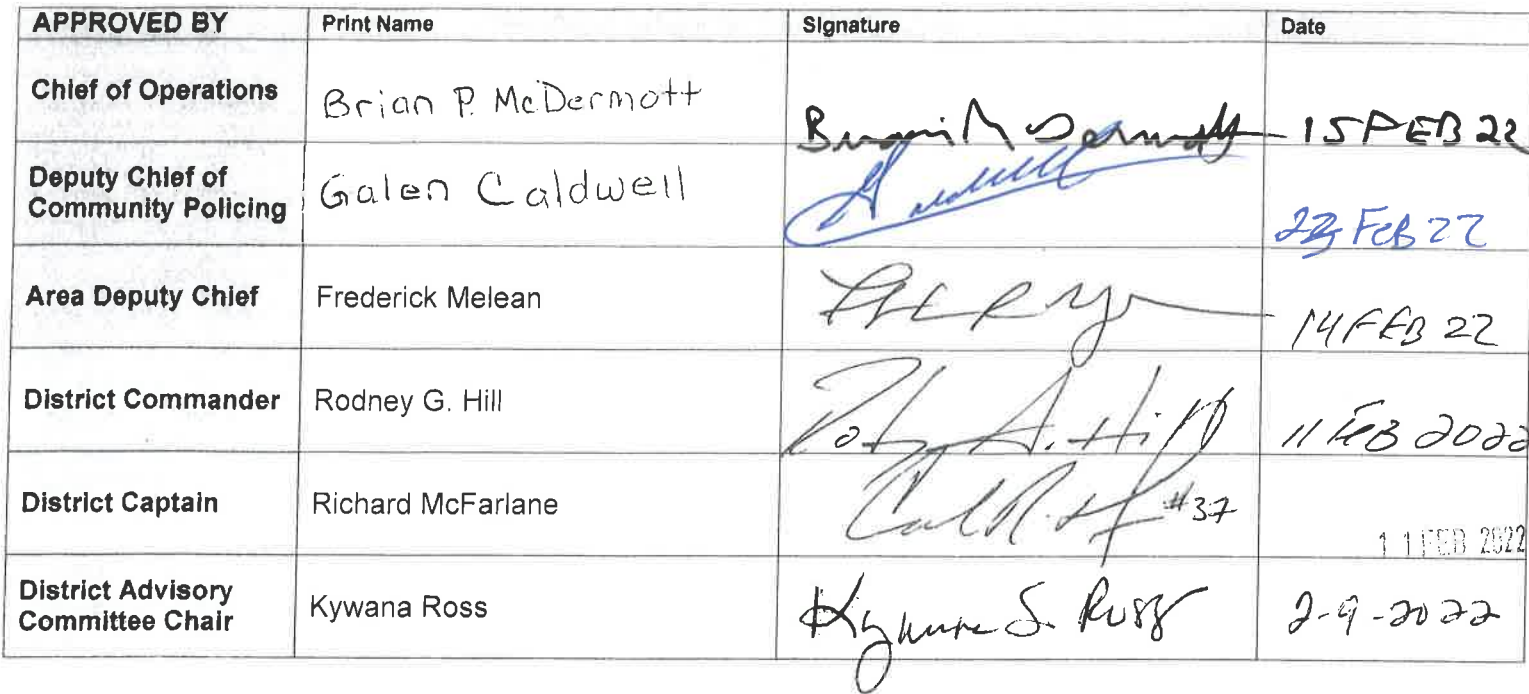 APPROVED BY Print Name Signature Date
Chief of Operations Brian P. McDermott Brian McDermott 15 FEB 22
Deputy Chief of
Community Policing Galen Caldwell FEB 22
Area Deputy Chief Frederick Melean 14 FEB 22
District Commander Rodney G. Hill Hill 11 FEB 2022
District Captain Richard McFarlane #37 11 FEB 2022
District Advisory
Committee Chair Kywana Ross Kywana S. Ross 2-9-2022